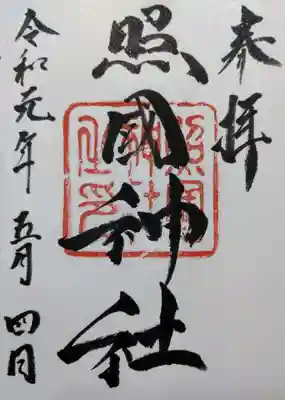 奉拝
照國神社
照国神社之印
令和元年五月四日